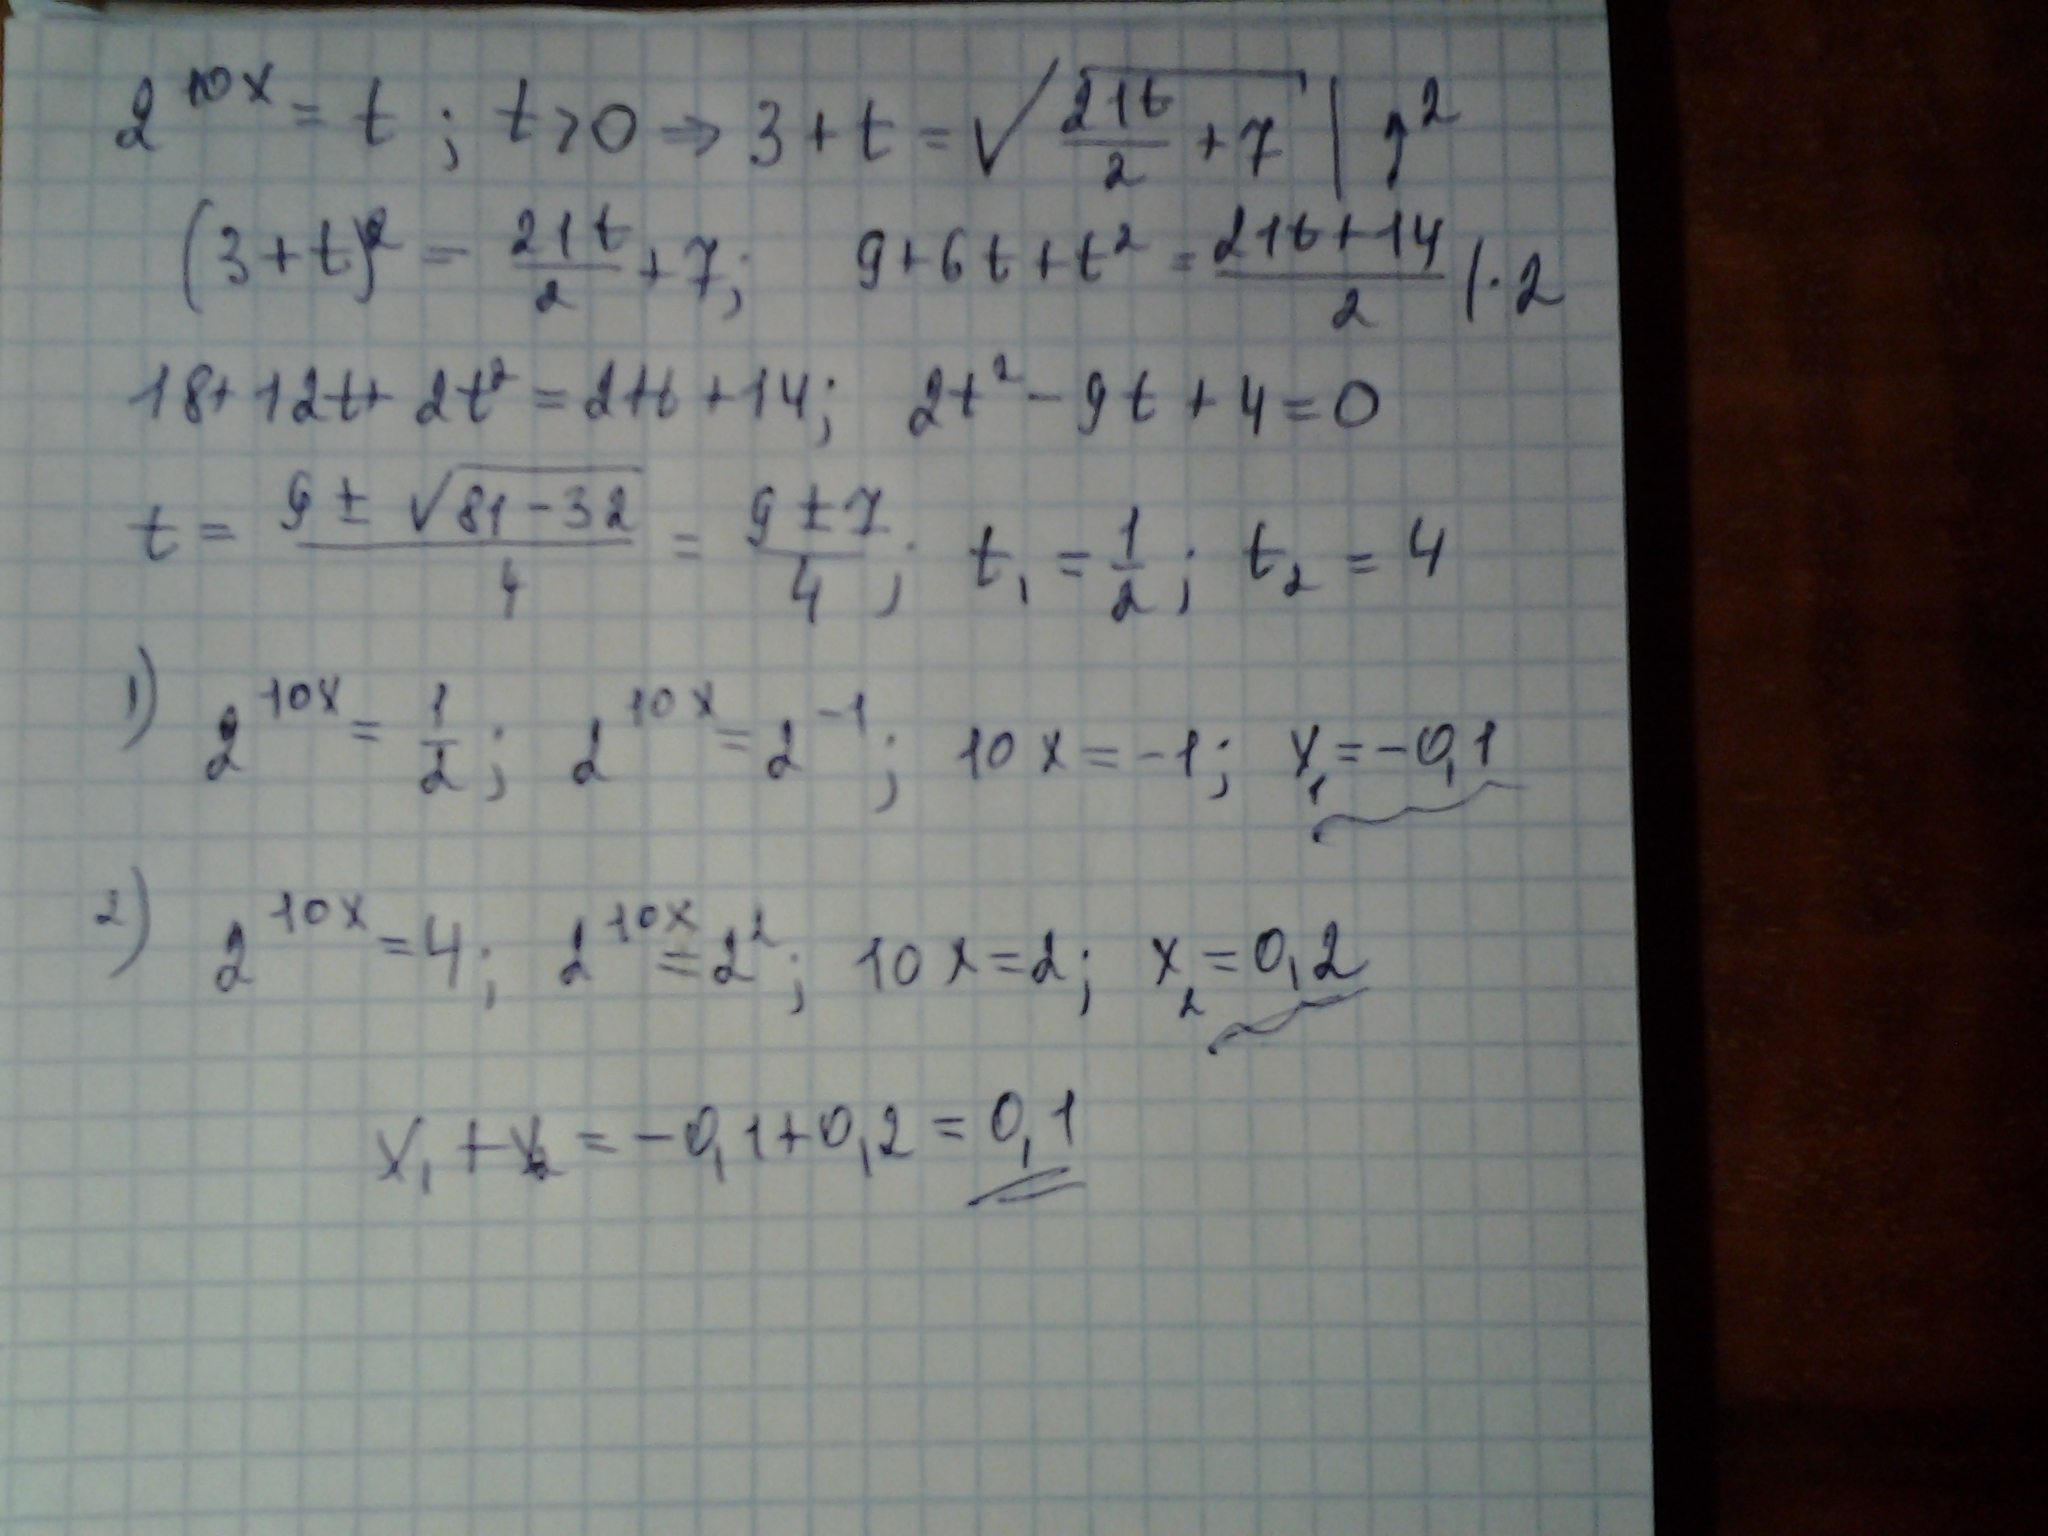 2^{10x} = t ; t > 0 ⇒ 3 + t = √(21t/2 + 7) | ↑²
(3 + t)² = 21t/2 + 7; 9 + 6t + t² = (21t + 14)/2 | · 2
18 + 12t + 2t² = 21t + 14; 2t² - 9t + 4 = 0
t = (9 ± √(81 - 32))/4 = (9 ± 7)/4; t₁ = 1/2; t₂ = 4
1) 2^{10x} = 1/2; 2^{10x} = 2^{-1}; 10x = -1; x₁ = -0,1
2) 2^{10x} = 4; 2^{10x} = 2²; 10x = 2; x₂ = 0,2
x₁ + x₂ = -0,1 + 0,2 = 0,1